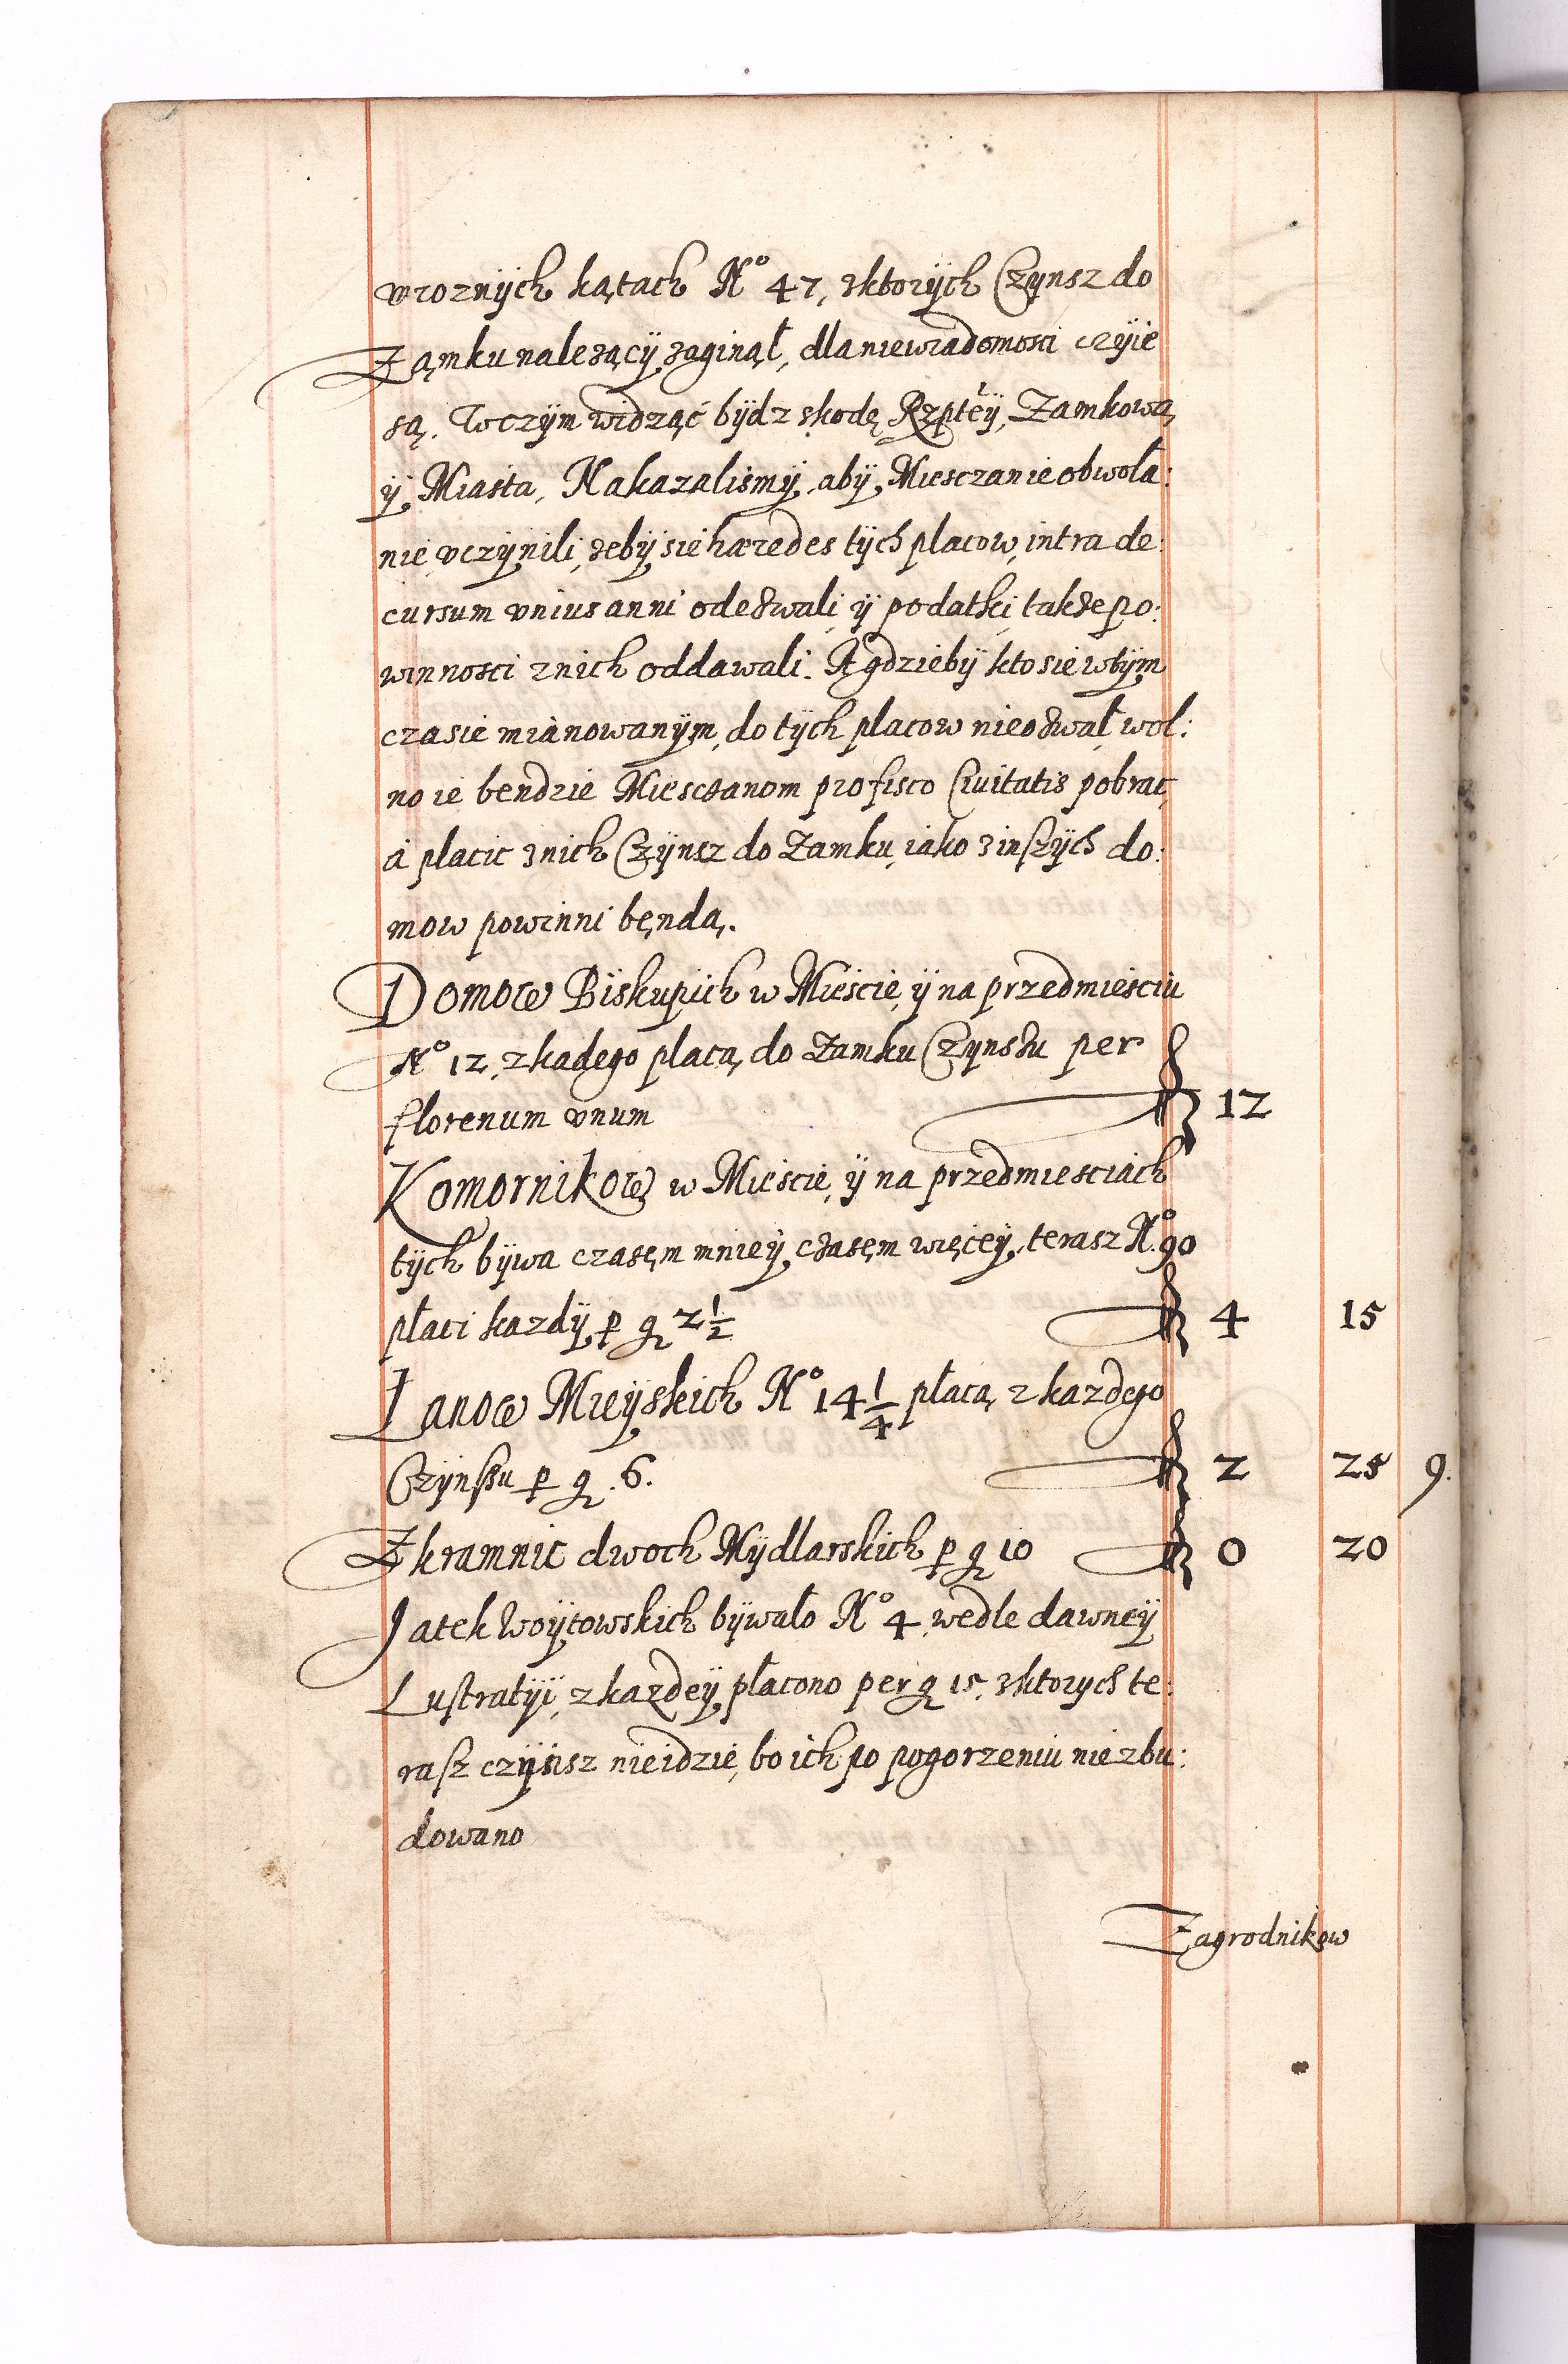 wroznÿch kątach No 47, zktorÿch Czÿnsz do
Ząmku nalezącÿ zaginął, dla niewiadomosci czÿie
są. Wczÿm widząć bÿdz skodę Rzptеÿ, Zamkową
ÿ Miasta, Nakazalismÿ, abÿ Miesczanie obwoła:
nie vczÿnili, zebÿ sie hæredes tÿch placow, intra de:
cursum vnius anni odezwali, ÿ podatki, takze po:
winnosci znich oddawali. A gdziebÿ kto sie wtÿm
czasie mianowanÿm, do tÿch placow nieozwał, wol:
no ie bendzie Miesczanom pro fisco Ciuitatis pobrac,
á placic znich Czÿnsz do Zamku, iako z inszÿch do:
mow powinni bęndą.
Domow Biskupich w Miescie, ÿ na przedmiesciu
No 12, zkadego placą do Zamku Czÿnszu per
florenum vnum 12
Komornikow w Miescie, ÿ na przedmiesciach
tÿch bÿwa czasęm mnieÿ, czasęm więceÿ, terasz No. 90
płaci kazdÿ p g 2 1/2 4 15
Lanow Mieÿskich No 14 1/4 płacą z kazdego
Czÿnszu p g. 6. 2 25 9.
Z kramnic dwoch Mÿdlarskich p g 10 0 20
Jatek Woÿtowskich bÿwało No 4, wedle dawneÿ
Lustratÿi, z kazdeÿ płacono per g 15, zktorych te:
rasz czÿnsz nieidzie, bo ich po pogorzeniu niezbu:
dowano
Zagrodnikow